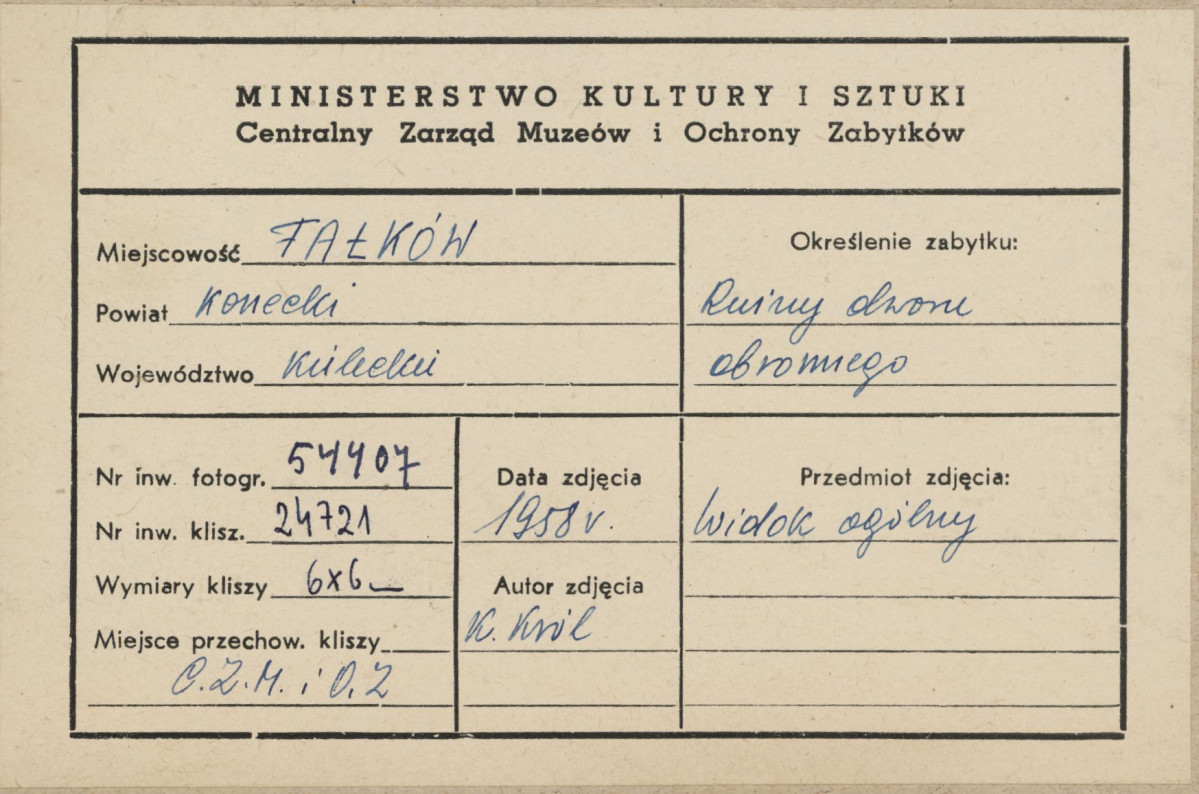 MINISTERSTWO KULTURY I SZTUKI
Centralny Zarząd Muzeów i Ochrony Zabytków
Miejscowość FAŁKÓW
Powiat konecki
Województwo kielecki
Określenie zabytku:
Ruiny dworu
obronnego
Nr inw. fotogr. 54407
Nr inw. klisz. 24721
Wymiary kliszy 6x6
Miejsce przechow. kliszy
C.Z.M. i O.Z
Data zdjęcia
1958 r.
Autor zdjęcia
K. Król
Przedmiot zdjęcia:
Widok ogólny